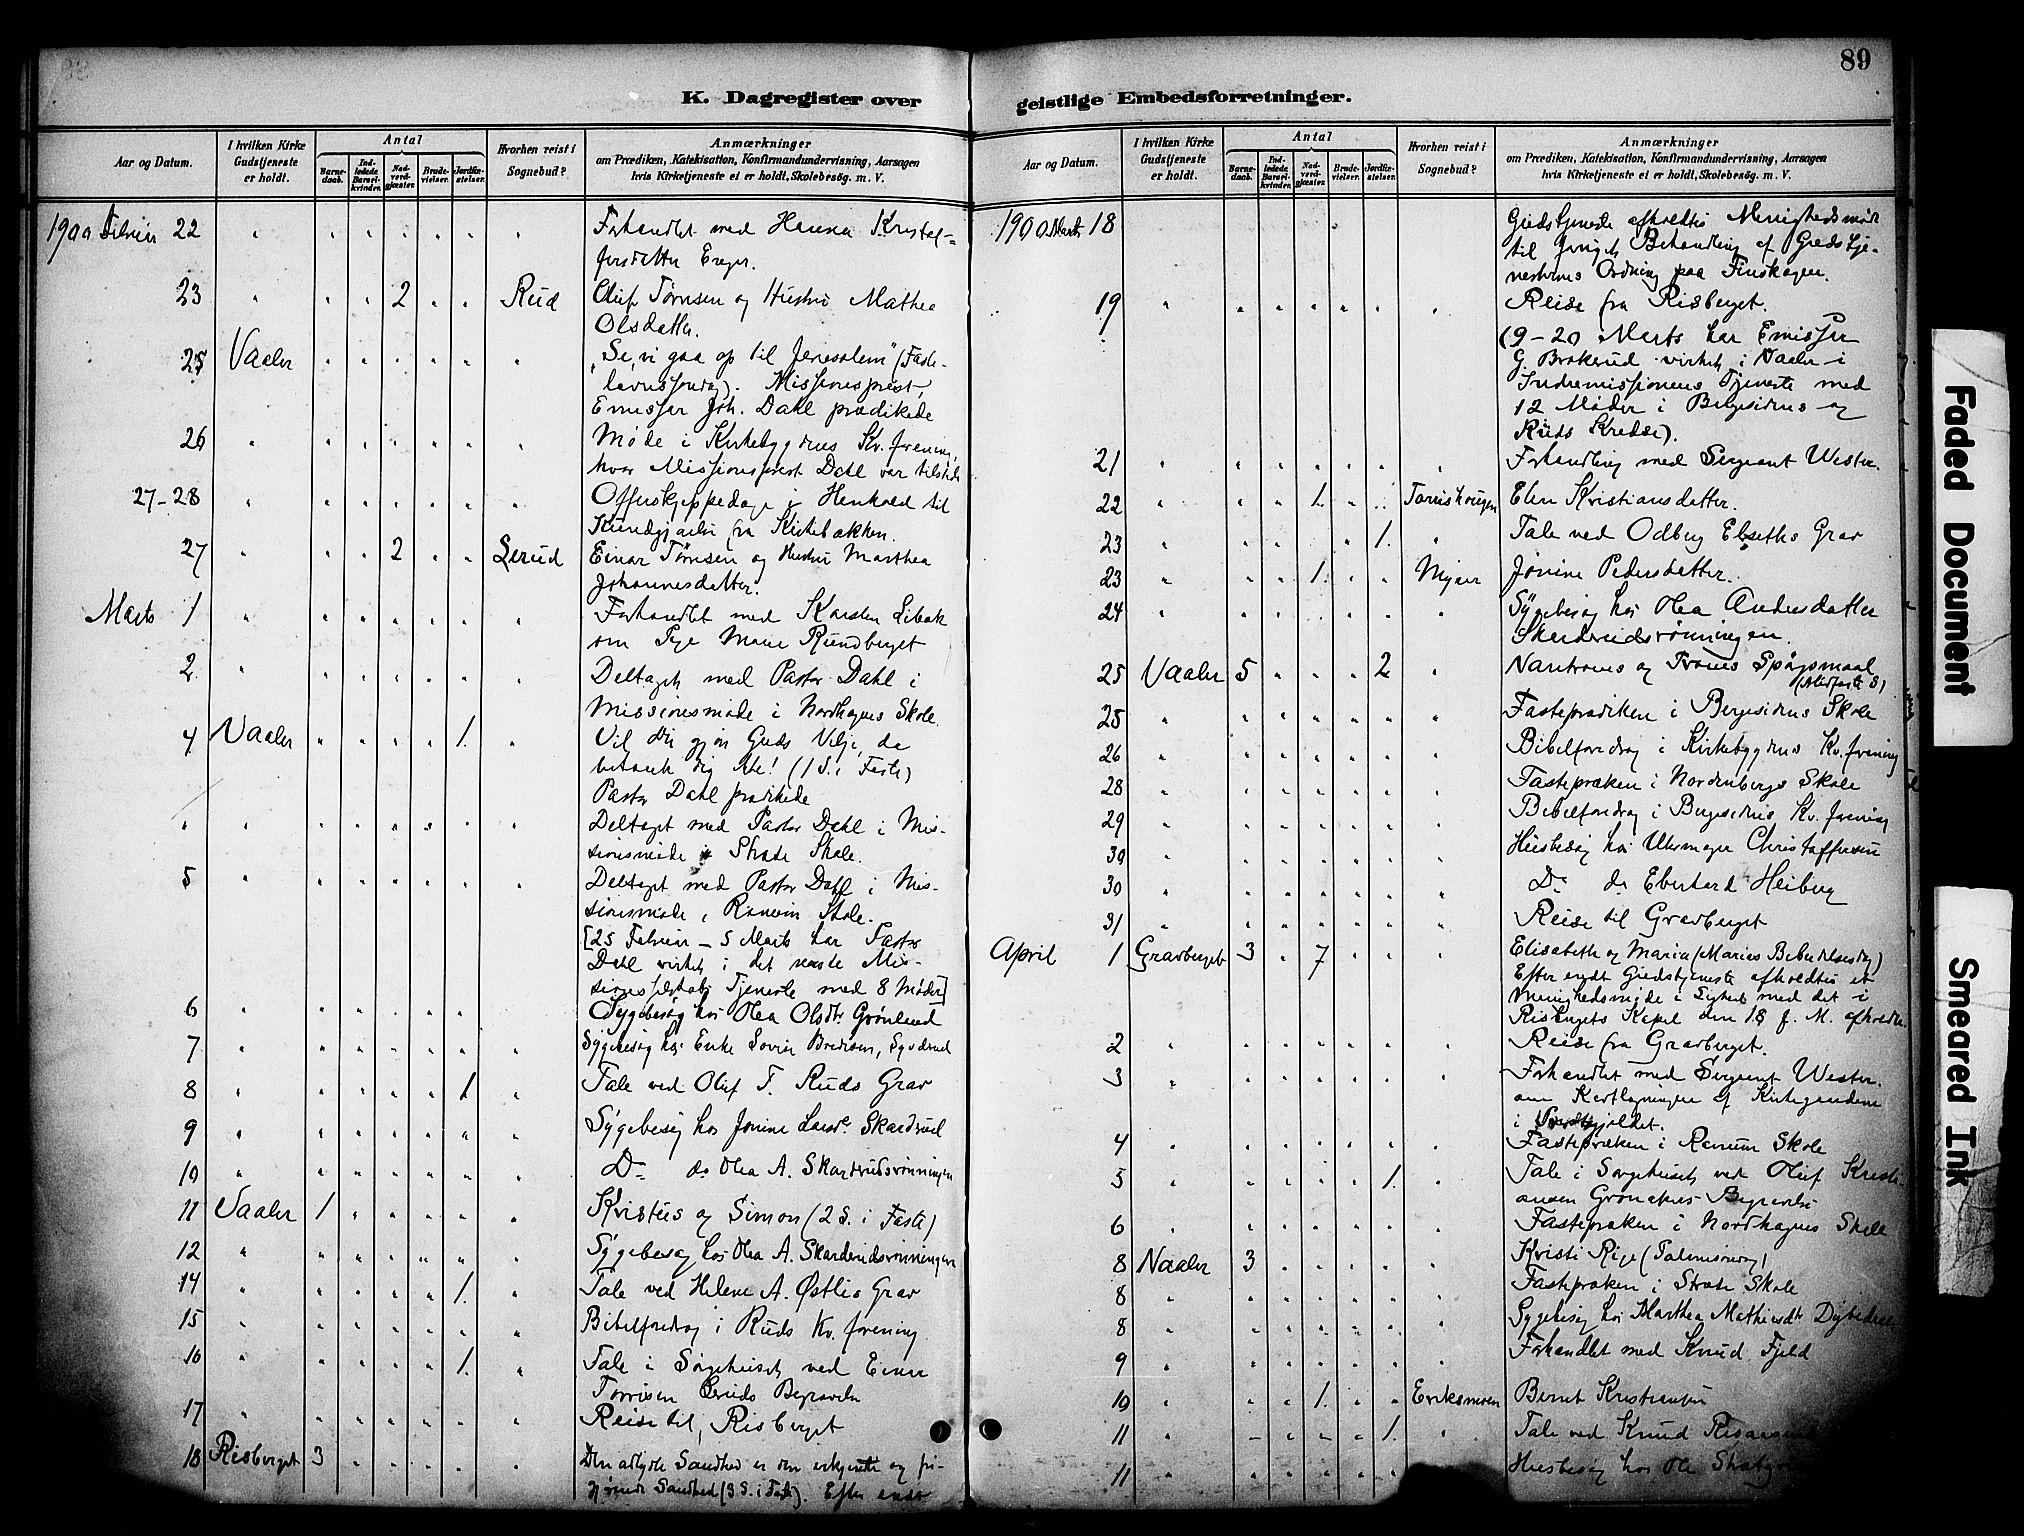 89
K. Dagregister over geistlige Embedsforretninger.
Aar og Datum.
I hvilken Kirke Gudstjeneste er holdt.
Antal
Barnedaab.
Indledede Barselkvinder.
Nadverdgjæster.
Brudevielser.
Jordfæstelser.
Hvorhen reist i Sognebud?
Anmærkninger
om Prædiken, Katekisation, Konfirmandundervisning, Aarsagen
hvis Kirketjeneste ei er holdt, Skolebesøg. m. V.
1900 Februar 22 Forhandlet med Hanna Kristof-
fersdatter
23 2 Rud Oluf Tørrisen og Hustru Mathea
Olsdatter.
25 Vaaler "Se, vi gaa op til Jerusalem" (Faste-
lavnssøndag). Missionsprest,
Emissær Joh. Dahl prædikede
26 Møde i Kirkebygdens Kv.forening,
hvor Missionsprest Dahl var tilstede
27-28 i Henhold til
Kundgjørelse fra Kirkebakken.
27 2 Lerud Einar Tørrisen og Hustru Marthea
Johannesdatter.
Marts 1 Forhandlet med Karsten Libak
om Pige Marie Rundberget
2 Deltaget med Pastor Dahl i
Missionsmøde i Nordhagens Skole
4 Vaaler 1. Vil Du gjøre Guds Vilje, da
betænk dig ikke! (1 S. i Faste)
Pastor Dahl prædikede
Deltaget med Pastor Dahl i Mis-
sionsmøde i Strade Skole.
5 Deltaget med Pastor Dahl i Mis-
sionsmøde i Skole.
[25 Februar - 5 Marts har Pastor
Dahl virket i det norske Mis-
sionsselskabs Tjeneste med 8 Møder]
6 Sygebesøg hos Olea Olsdtr Grønlund
7 Sygebesøg hos Enke
8 1 Tale ved Oluf T. Ruds Grav
9 Sygebesøg hos Jonine Larsdr. Skardrud
10 Do do Olea A. Skardrudsrønningen
11 Vaaler 1 Kristus og Simon (2 S. i Faste)
12 Sygebesøg hos Olea A. Skardrudsrønningen
14 1. Tale ved Helene A. Østlis Grav
15 Bibelforedrag i Ruds Kv.forening
16 1. Tale i Sørgehuset ved Einar
Tørrisen Leruds Begravelse
17 Reise til Risberget
18 Risberget 3 Den adlydte Sandhed er den erkjendte og fri-
gjørende Sandhed (3 S. i Faste). Efter endt
Aar og Datum.
I hvilken Kirke Gudstjeneste er holdt.
Antal
Barnedaab.
Indledede Barselkvinder.
Nadverdgjæster.
Brudevielser.
Jordfæstelser.
Hvorhen reist i Sognebud?
Anmærkninger
om Prædiken, Katekisation, Konfirmandundervisning, Aarsagen
hvis Kirketjeneste ei er holdt, Skolebesøg. m. V.
1900 Marts 18 Gudstjeneste afholdtes Menighedsmøde
til Behandling af Gudstje-
nesternes Ordning paa Finskogen.
19 Reise fra Risberget.
(9-20 Marts har Emissær
G. Brakerud virket i Vaaler i
Indremissionens Tjeneste med
12 Møder i Bergesidens og
Ruds Kredse).
21 Forhandling med Sergeant Wester.
22 1. Elen Kristiansdatter.
23 1. Tale ved Odberg Elseths Grav
23 1. Myrer Jonine Pedersdatter.
24 Sygebesøg hos Olea Andersdatter
Skardrudsrønningen.
25 Vaaler 5 2 Vantroens og Troens Spørgsmaal
(Midfaste S)
25 Fasteprædiken i Bergesidens Skole
26 Bibelforedrag i Kirkebygdens Kv.forening
28 Fastepræken i Nordenbergs Skole
29 Bibelforedrag i Bergesidens Kv.forening
30 Husbesøg hos Uhrmager Christoffersen
30 Do do Eberhard Heiberg
31 Reise til Gravberget
April 1 Gravberget 3 7 Elisabeth og Maria (Marias Bebudelsesdag)
Efter endt Gudstjeneste afholdtes et
Menighedsmøde i Lighed med det i
Risbergets Kapel den 18 f. M. afholdte.
2 Reise fra Gravberget.
3 Forhandlet med Sergeant Wester.
om Kartlægningen af Kirkegaardene
i Præstegjeldet.
4 Fastepræken i Renum Skole
5 1. Tale i Sørgehuset ved Oluf Kristi-
ansen Begravelse
6 Fastepræken i Nordhagens Skole
8 Vaaler 3 Kristi Rige (Palmesøndag)
8 Fastepræken i Strade Skole
8 Sygebesøg hos Marthea Mathiesdtr
9 Forhandlet med Knud Fjeld
10 1. Eriksmoen Bernt Kristiansen
11 1. Tale ved Knud
11 Husbesøg hos Ole
Faded Document
Smeared Ink